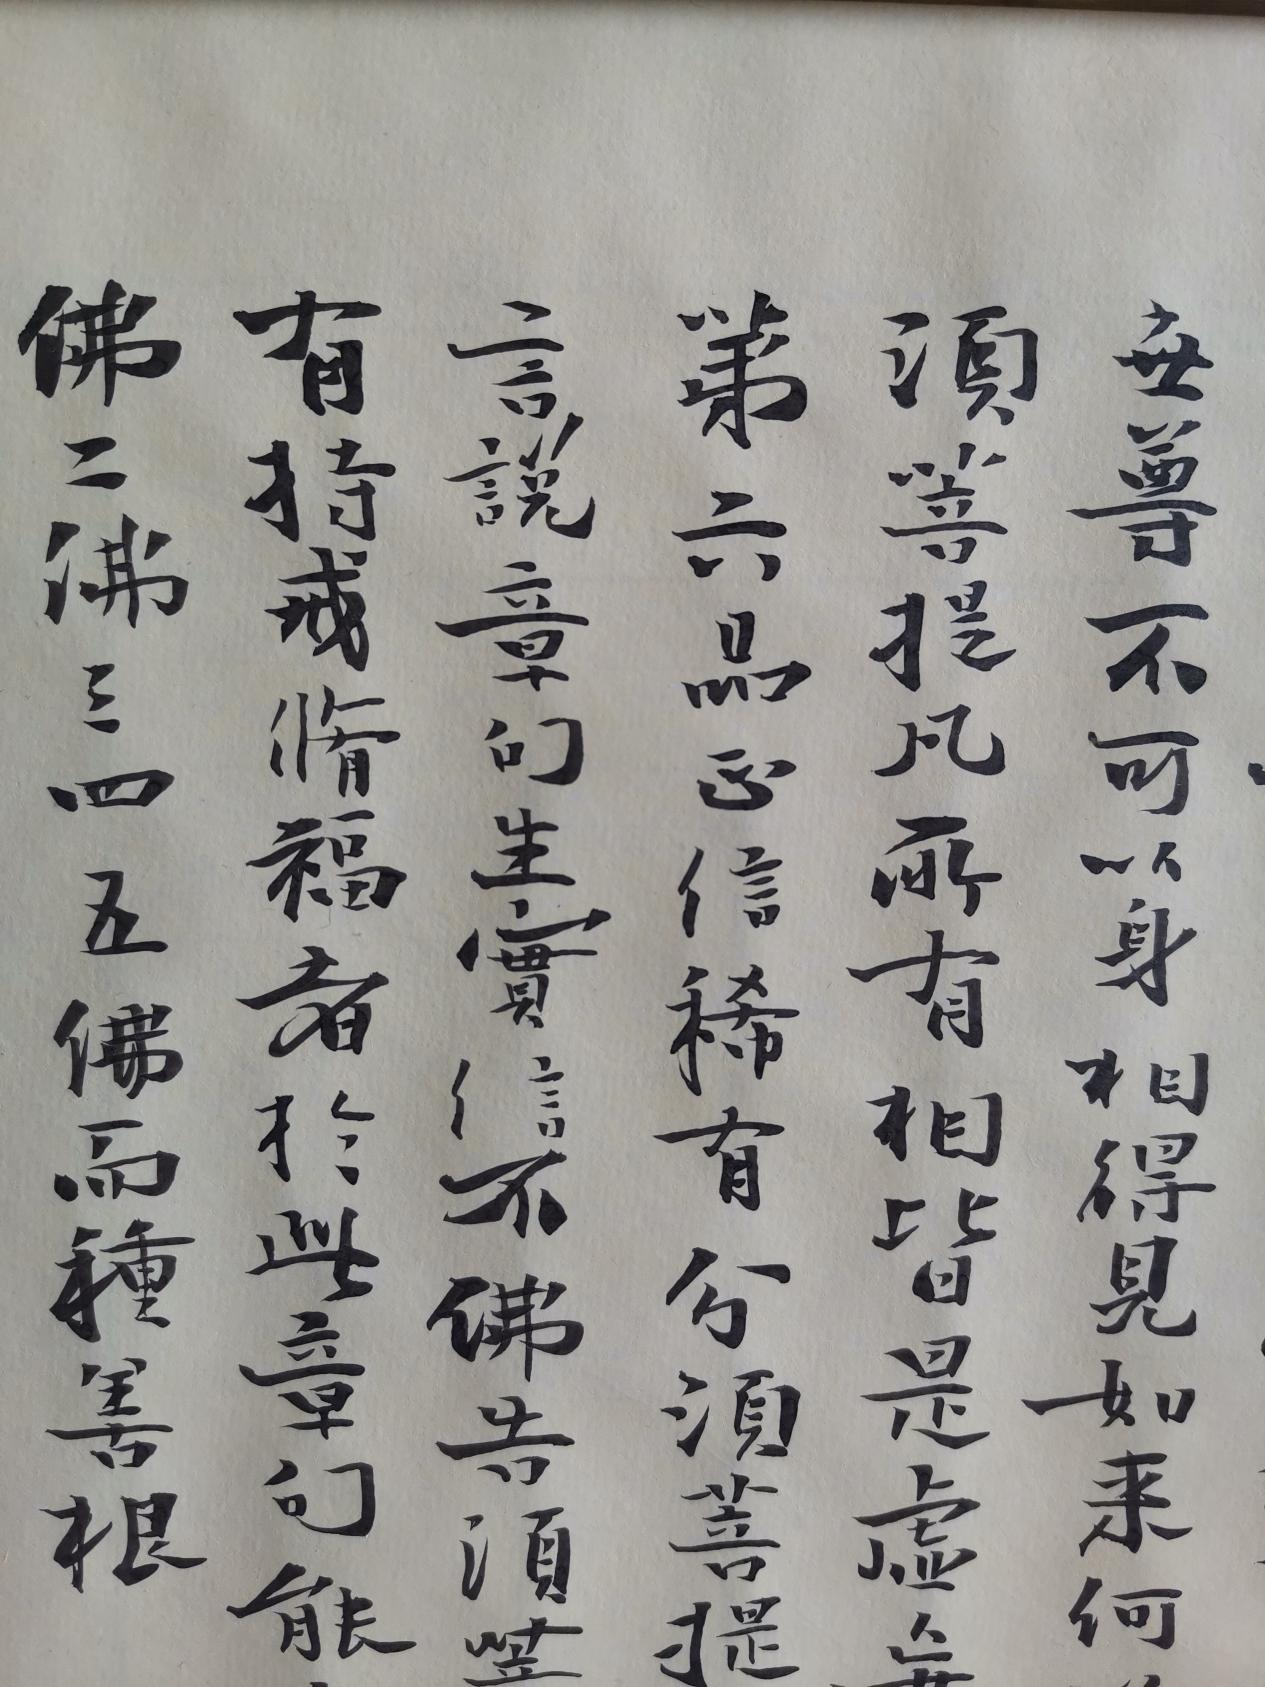 世尊不可以身相得見如来何
須菩提凡所有相皆是虛
第六品正信稀有分須菩提
言說章句生實信不佛告須菩
有持戒脩福者於此章句能
佛二佛三四五佛而種善根